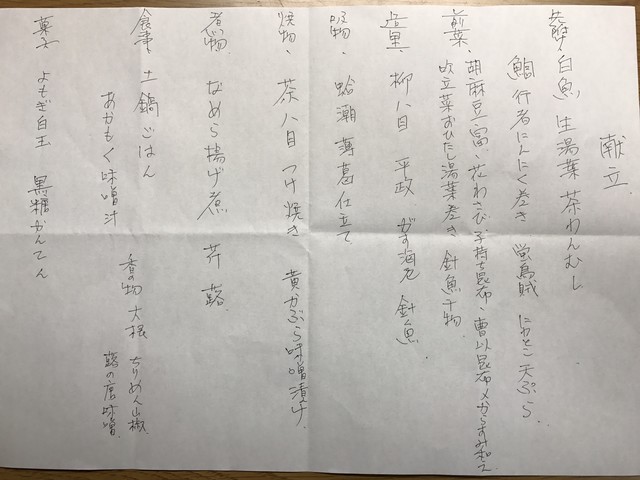 献立
先附 白魚 生湯葉 茶わんむし
鯛 行者にんにく巻き 蛍烏賊 にわとこ天ぷら
前菜、胡麻豆富、花わさび、子持ち昆布、曹以昆布〆からすみ和え
吹立菜おひたし湯葉巻き 針魚干物
造里、柳八目 平政 がす海老 針魚
吸物、蛤潮 薄葛仕立て
焼物、茶八目 つけ焼き 黄かぶら味噌漬け
煮物 なめら揚げ煮 芹 蕗
食事 土鍋ごはん
あかもく味噌汁
香の物 大根 ちりめん山椒
蕗の唐味噌
菓子 よもぎ白玉 黒糖かんてん